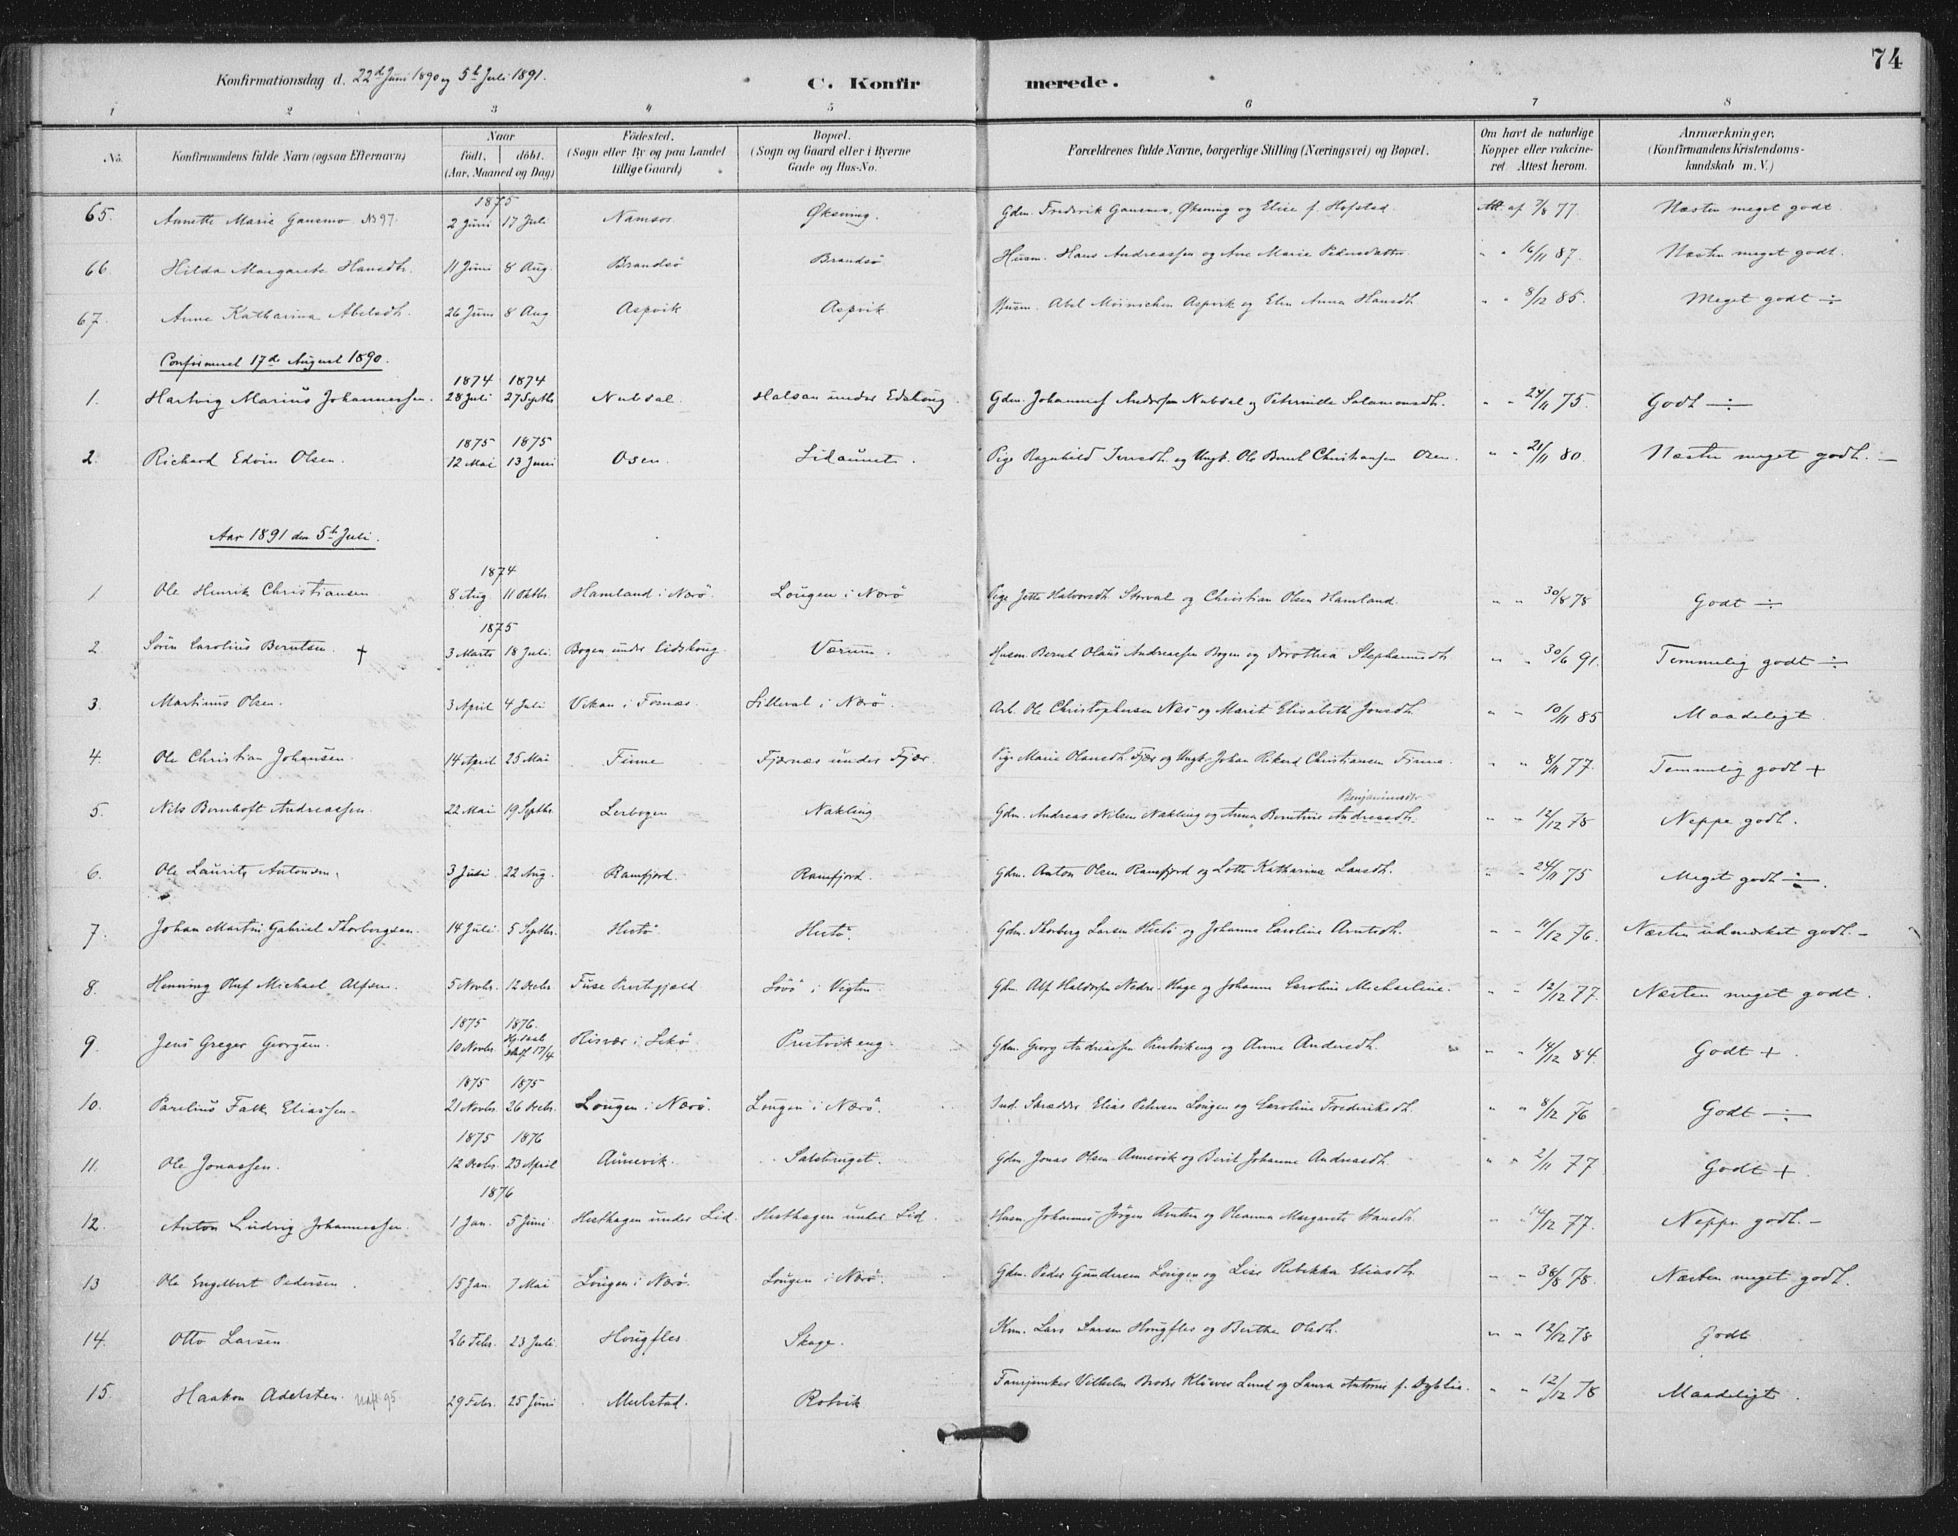 74
Konfirmationsdag d. 22d Juni 1890 og 5t Juli 1891. C. Konfirmerede.
1 2 3 4 5 6 7 8
No. Konfirmandens fulde Navn (ogsaa Efternavn) Naar födt, döbt. (Aar, Maaned og Dag) Födested. (Sogn eller By og paa Landet tillige Gaard) Bopæl. (Sogn og Gaard eller i Byerne Gade og Hus-No. Forældrenes fulde Navne, borgerlige Stilling (Næringsvei) og Bopæl. Om havt de naturlige Kopper eller vakcineret. Attest herom. Anmærkninger. (Konfirmandens Kristendomskundskab m. V.)
1875
65. Annette Marie Gansmo No 97. 2 Juni 17 Juli Namsos Øksning. Gdm. Frederik Gansmo, Øksning og Elise f. Hofstad. Att. af 7/8 77. Næsten meget godt.
66. Hilda Margarete Hansdtr. 11 Juni 8 Aug. Brandsö Brandsö Husm. Hans Andreassen og Ane Marie Pedersdatter. " " 16/11 87. Næsten meget godt.
67. Anne Katharina Abelsdtr. 26 Juni 8 Aug Aspvik Aspvik Husm. Abel Aspvik og Elen Anna Hansdtr. " " 8/12 85. Meget godt ÷
Confirmeret 17de August 1890.
1874 1874
1. Hartvig Marius Johannessen. 28 Juli 27 Septbr Nubdal. Halsan under Edshoug. Gdm. Johannes Andersen Nubdal og Peternille Salamonsdtr. " " 24/11 75. Godt ÷
1875 1875
2. Richard Edvin Olsen. 12 Mai 13 Juni Osen Lidaunet. Pige Ragnhild Iversdtr. og Ungk. Ole Bernt Christiansen Osen. " " 21/11 80. Næsten meget godt. –
Aar 1891 den 5te Juli.
1874
1 Ole Henrik Christiansen 8 Aug 11 Oktbr. Hamland i Nærö. Lougen i Nærö Pige Jette Halvorsdtr. og Christian Olsen Hamland. " " 30/8 78 Godt ÷
1875
2 Sören Carolius Berntsen + 3 Marts 18 Juli Bogen under Eidshoug Værum. Husm. Bernt Olaus Andreassen Bogen og Dorothea Stephansdtr. " " 30/6 91. Temmelig godt ÷
3. Martinus Olsen. 3 April 4 Juli Vikan i Fosnæs. Silleval i Nærö. Arb. Ole Christophersen Næs og Marit Elisabeth Jonsdtr. " " 10/11 85 Maadeligt.
4. Ole Christian Johansen. 14 April 25 Mai Finne Fjærnæs under Fjær. Pige Marie Olausdtr. Fjær og Ungk. Johan Rikard Christiansen Finne. " " 8/11 77. Temmelig godt +
Benjaminsdtr
5. Nils Bernhoft Andreassen. 22 Mai 19 Septbr. Lerbogen Nakling Gdm. Andreas Nilsen Nakling og Anna Berntine Andreasdtr. " " 12/12 78 Neppe godt.
6. Ole Laurits Antonsen. 3 Juli 22 Aug. Ramfjord. Ramfjord. Gdm. Anton Olsen Ramfjord og Lotte Katharina Larsdtr. " " 24/11 75 Meget godt ÷.
7. Johan Martin Gabriel Thorbergsen. 14 Juli 5 Septbr. Hestö Hestö. Gdm. Thorberg Larsen Hestö og Johanna Caroline Arntsdtr. " " 11/12 76. Næsten udmærket godt. –
8. Henning Ruf Michael Alfsen. 5 Novbr. 12 Decbr Fuse Prestegjæld Lövö i Vigten Gdm. Alf Haldorsen Nedre-Hage og Johanne Caroline Michaeline. " " 12/12 77. Næsten meget godt.
1875 1876.
9. Jens Greger Georgsen. 10 Novbr. Hj.daab stadf 17/4 Risvær i Lekö Prestvikeng. Gdm. Georg Andreassen Prestvikeng og Anne Andersdtr. " " 14/12 84. Godt +.
1875 1875
10. Parelius Falk Eliassen. 21 Novbr. 26 Decbr. Lougen i Nærö. Lougen i Nærö. Ind. Skrædder Elias Petersen Lougen og Caroline Frederiksdtr. " " 8/12 76 Godt ÷
1875 1876
11. Ole Jonassen. 12 Decbr. 23 April Aunevik. Salsbruget. Gdm. Jonas Olsen Aunevik og Berit Johanne Andreasdtr. " " 2/11 77 Godt +.
1876
12. Anton Ludvig Johannessen. 1 Jan. 5 Juni Hesthagen under Lid. Hesthagen under Lid. Husm. Johannes Jörgen Arntsen og Oleanna Margarete Hansdtr. " " 14/12 77. Neppe godt. –
13 Ole Engelbert Pedersen. 15 Jan. 7 Mai Lougen i Nærö. Lougen i Nærö. Gdm. Peder Gundersen Lougen og Lise Rebikka Eliasdtr. " " 78. Næsten meget godt.
14. Otto Larsen 26 Febr. 23 Juli Hougfles. Skage. Km. Lars Larsen Hougfles og Berthe Olsdtr. " " 12/12 78 Godt
15. Haakon Adelsten. 95 29 Febr. 25 Juni Mulstad. Rotvik Vilhelm Broder Klüwer Lund og Laura Antonie f. Dyblie. " " 12/12 78 Maadeligt.